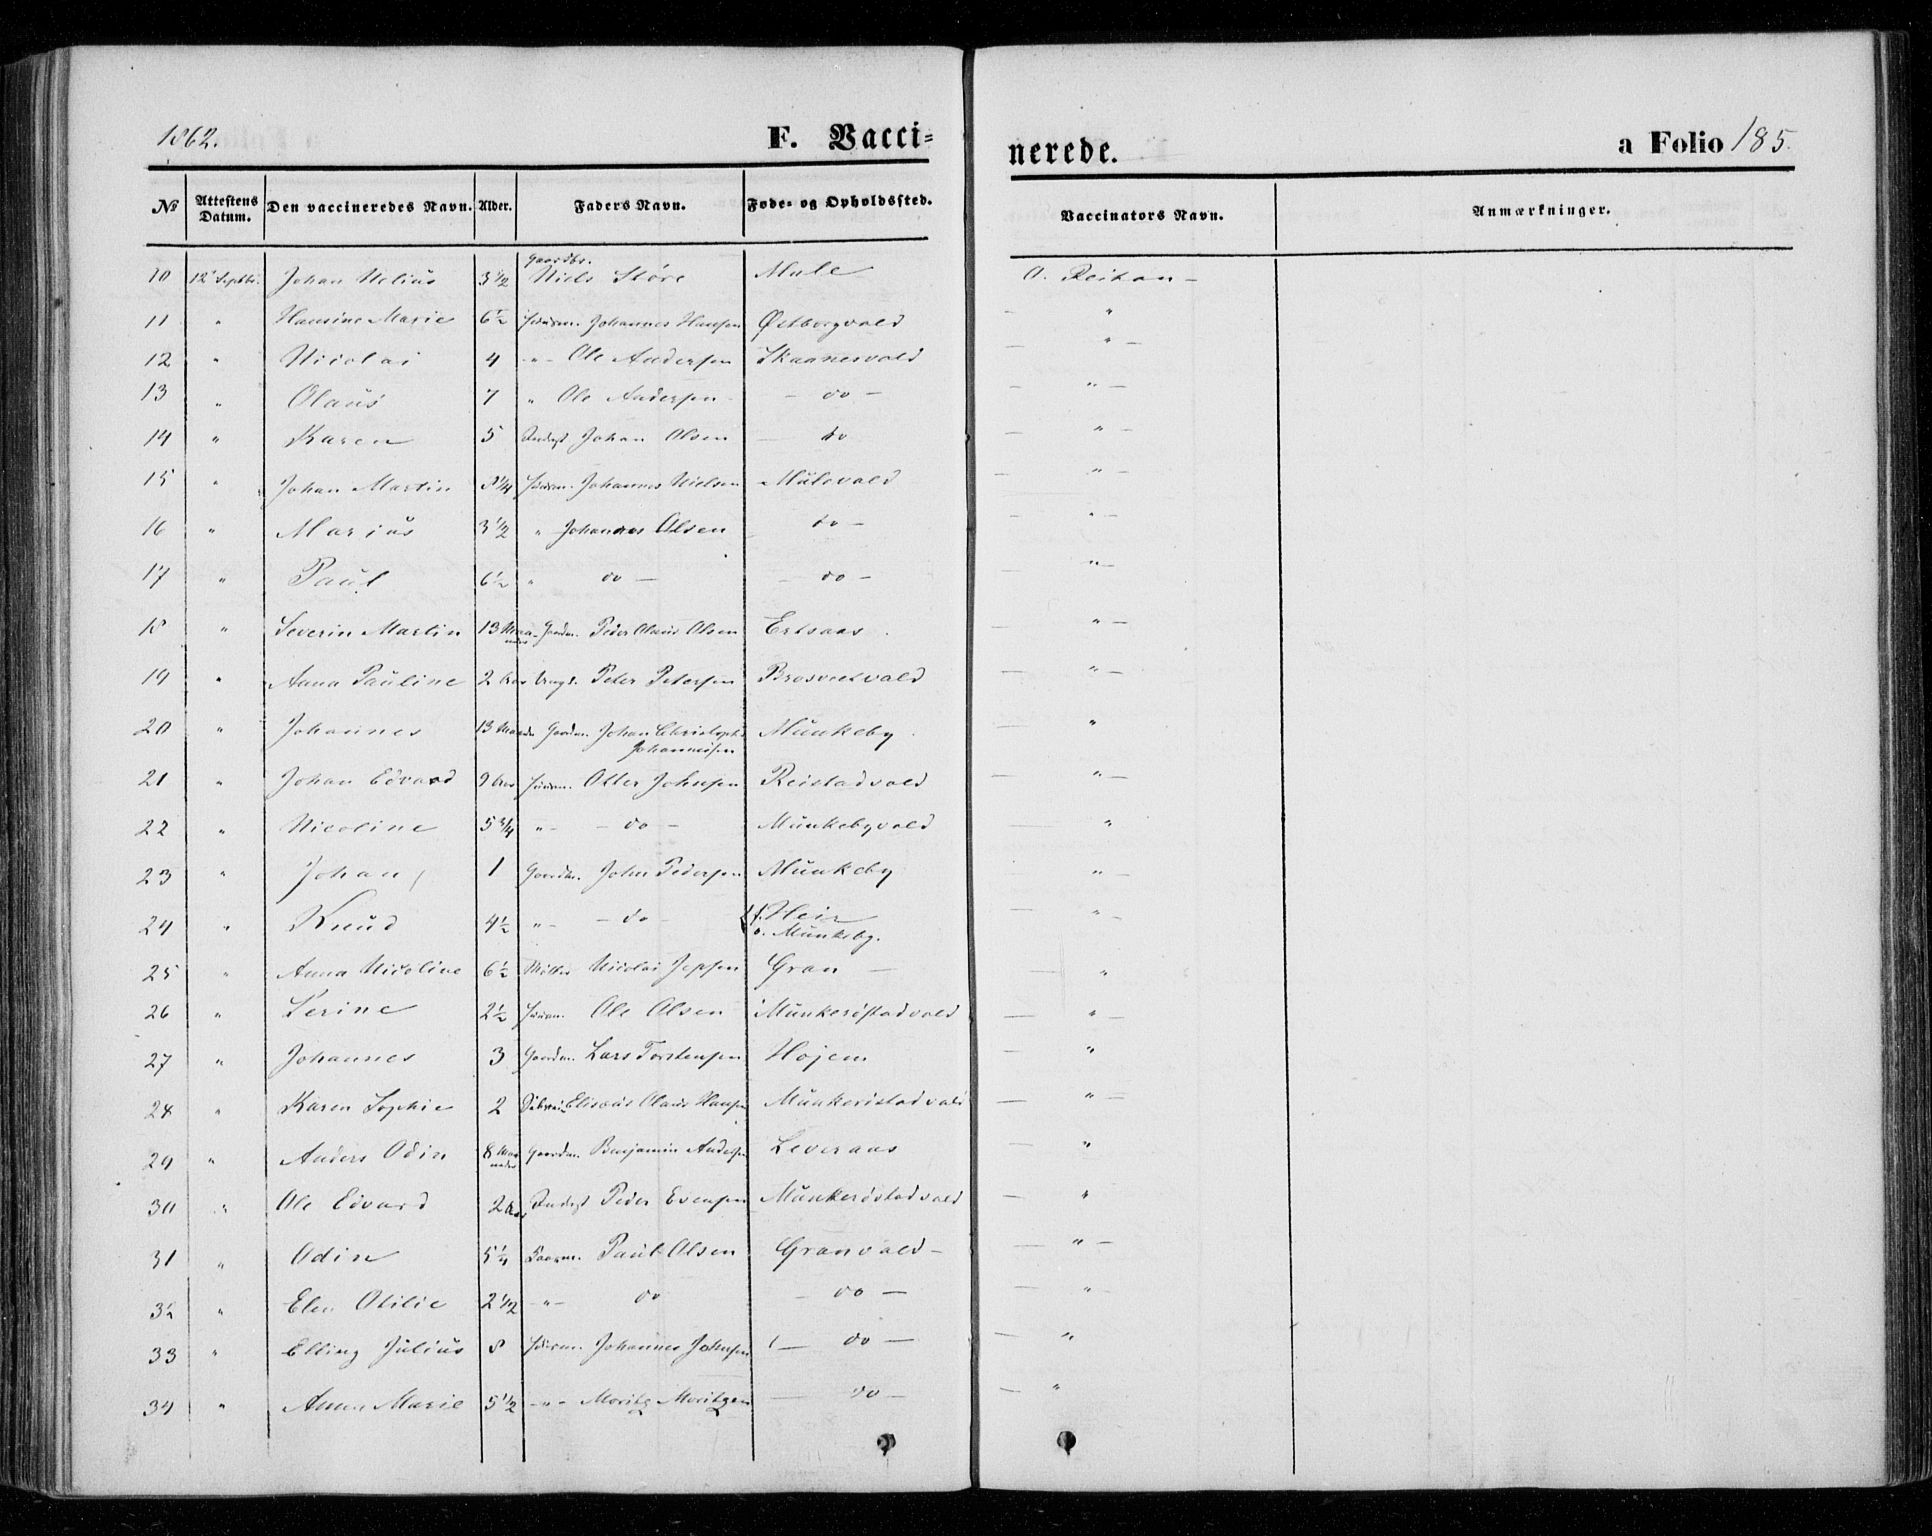 1862.
F. Vacci=
nerede.
a Folio 185.
№ Attestens Datum. Den vaccineredes Navn. Alder. Faders Navn. Føde- og Opholdssted. Vaccinators Navn. Anmærkninger.
10 12 Septbr. Johan Nelius 3 1/2 Gaardbr. Niels Støre Mule A. Reitan -
11 " Hansine Marie 6 1/2 Huusm. Johannes Hansen Østborgvald — "
12 " Nicolai 4 "- Ole Andersen Skaanesvald — " —
13 " Olaus 7 " Ole Andersen - — do — — " —
14 " Karen 5 Inderst Johan Olsen — do — " —
15 " Johan Martin 8 1/4 Huusm. Johannes Nielsen Mulevald — " —
16 " Marius 3 1/2 " Johannes Olsen do — — " —
17 " Paul 6 1/2 " do — — do — — " —
18 " Severin Martin 13 Maaneder Gaardm. Peder Olaus Olsen Ertsaas — " —
19 " Anna Pauline 2 Aar Peter Petersen Brosveetvald — " —
20 " Johannes 13 Gaardm. Johan Christoph Johannessen Munkeby — "
21 " Johan Edvard 9 Aar Huusm. Otter Johnsen Reistadvald — " —
22 " Nicoline 5 3/4 "- — do — Munkebyvald — "
23 " Johan 1 Gaardm. John Pedersen Munkeby — " —
24 " Knud 4 1/2 "- — do — f. Heir o. Munkeby. — " —
25 " Anna Nicoline 6 1/2 Møller Nicolai Jepsen Gran — — "
26 " Serine 2 1/2 Huusm. Ole Olsen Munkerøstadvald — " —
27 " Johannes 3 Gaardm. Lars Torstensen Hojem — "
28 " Karen Sophie 2 Elisæus Olaus Hansen Munkerøstadvald — " —
29 " Anders Odin 8 Maaneder Gaardm. Benjamin Andersen Leveraas — "
30 " Ole Edvard 2 Aar Inderst Peder Evensen Munkerøstadvald — "
31 " Odin 5 1/4 Paul Olsen Granvald — — " —
32 " Elen Otilie 2 1/2 -"- do — do — — " —
33 " Elling Julius 8 Huusm. Johannes Johnsen — do — — "
34 " Anna Marie 5 1/2 -"- Moritz Moritzen — do — — "